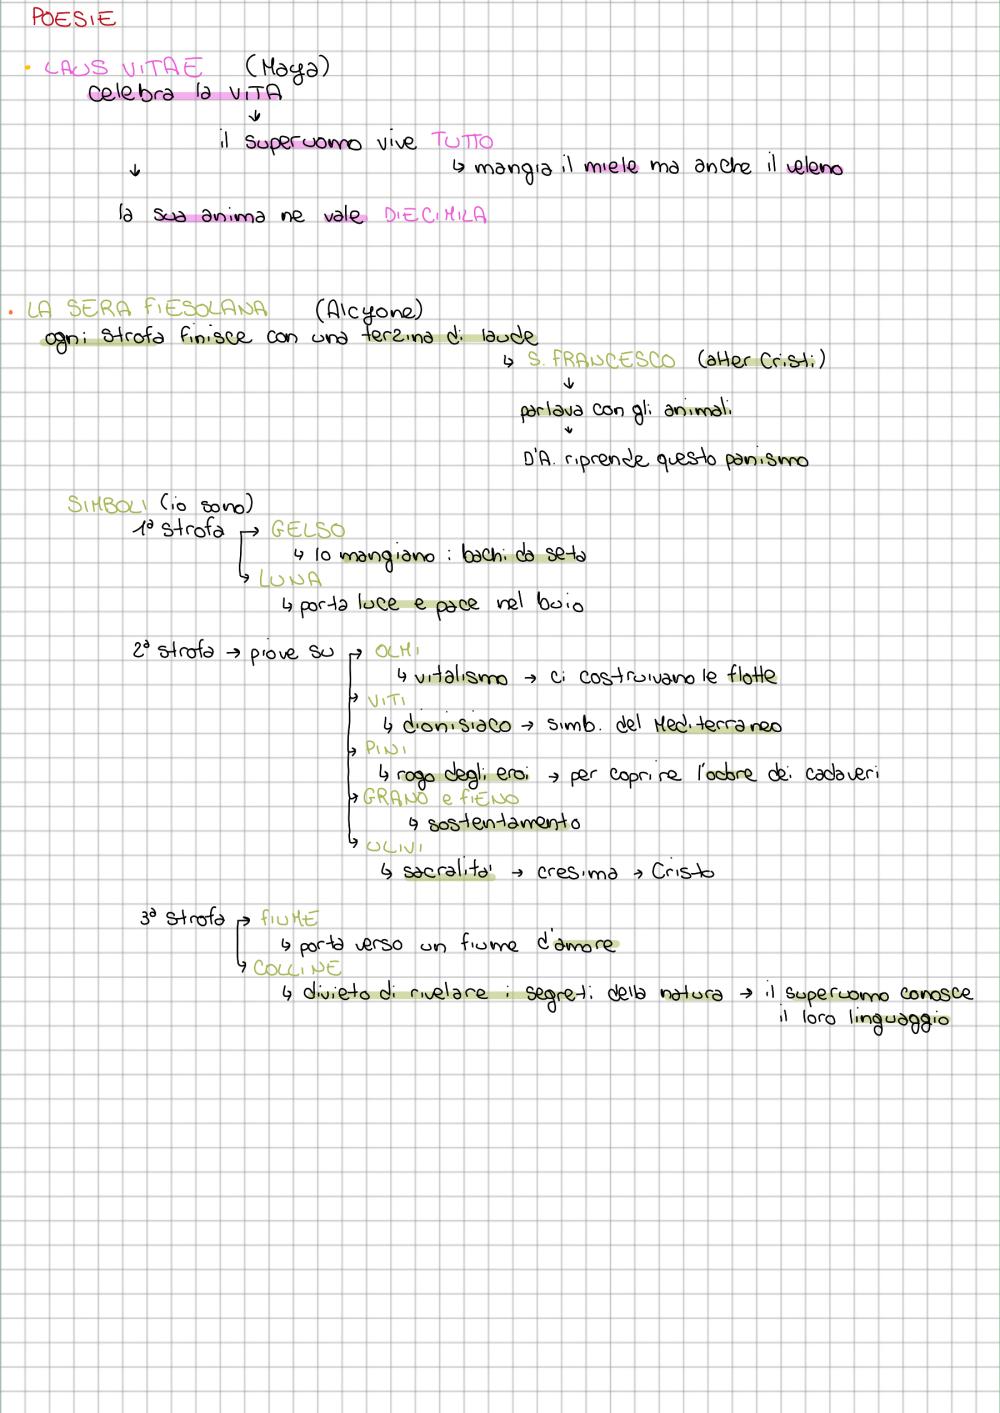 POESIE
• LAUS VITAE (Maya)
celebra la VITA
↓
il superuomo vive TUTTO
↓ ↳ mangia il miele ma anche il veleno
la sua anima ne vale DIECIMILA
• LA SERA FIESOLANA (Alcyone)
ogni strofa finisce con una terzina di laude
↳ S. FRANCESCO (alter Cristi)
↓
parlava con gli animali
↓
D'A. riprende questo panismo
SIMBOLI (io sono)
1ª strofa → GELSO
↳ lo mangiano i bachi da seta
↳ LUNA
↳ porta luce e pace nel buio
2ª strofa → piove su → OLMI
↳ vitalismo → ci costruivano le flotte
→ VITI
↳ dionisiaco → simb. del Mediterraneo
→ PINI
↳ rogo degli eroi → per coprire l'odore dei cadaveri
→ GRANO e FIENO
↳ sostentamento
↳ ULIVI
↳ sacralita' → cresima → Cristo
3ª strofa → FIUME
↳ porta verso un fiume d'amore
↳ COLLINE
↳ divieto di rivelare i segreti della natura → il superuomo conosce
il loro linguaggio